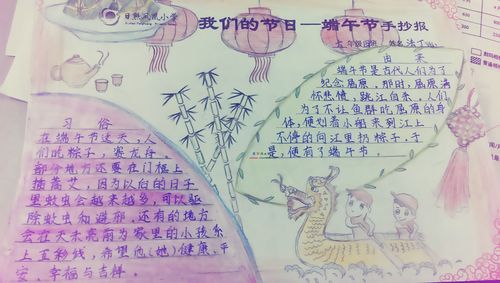 日照凤凰小学
我们的节日—端午节手抄报
由来
端午节是古代人们为了
纪念屈原。那时，屈原满
怀悲愤，跳江自杀，人们
为了不让鱼虾吃屈原的身
体，便划着小船来到江上
不停的向江里扔粽子，于
是，便有了端午节。
习俗
在端午节这天，人
们吃粽子，赛龙舟。
部分地方还要在门框上
插蒿艾，因为以后的日子
里蚊虫会越来越多，可以驱
除蚊虫和避邪，还有的地方
会在天未亮前为家里的小孩系
上五彩线，希望他(她)健康、平
安、幸福与吉祥。